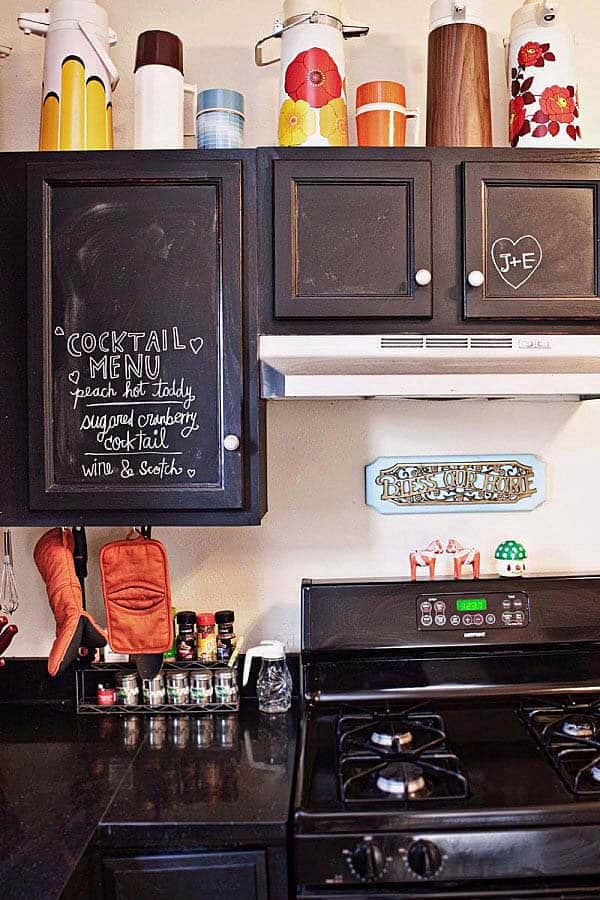 J+E
COCKTAIL
MENU
peach hot toddy
sugared cranberry
cocktail
wine & scotch
BLESS OUR HOME